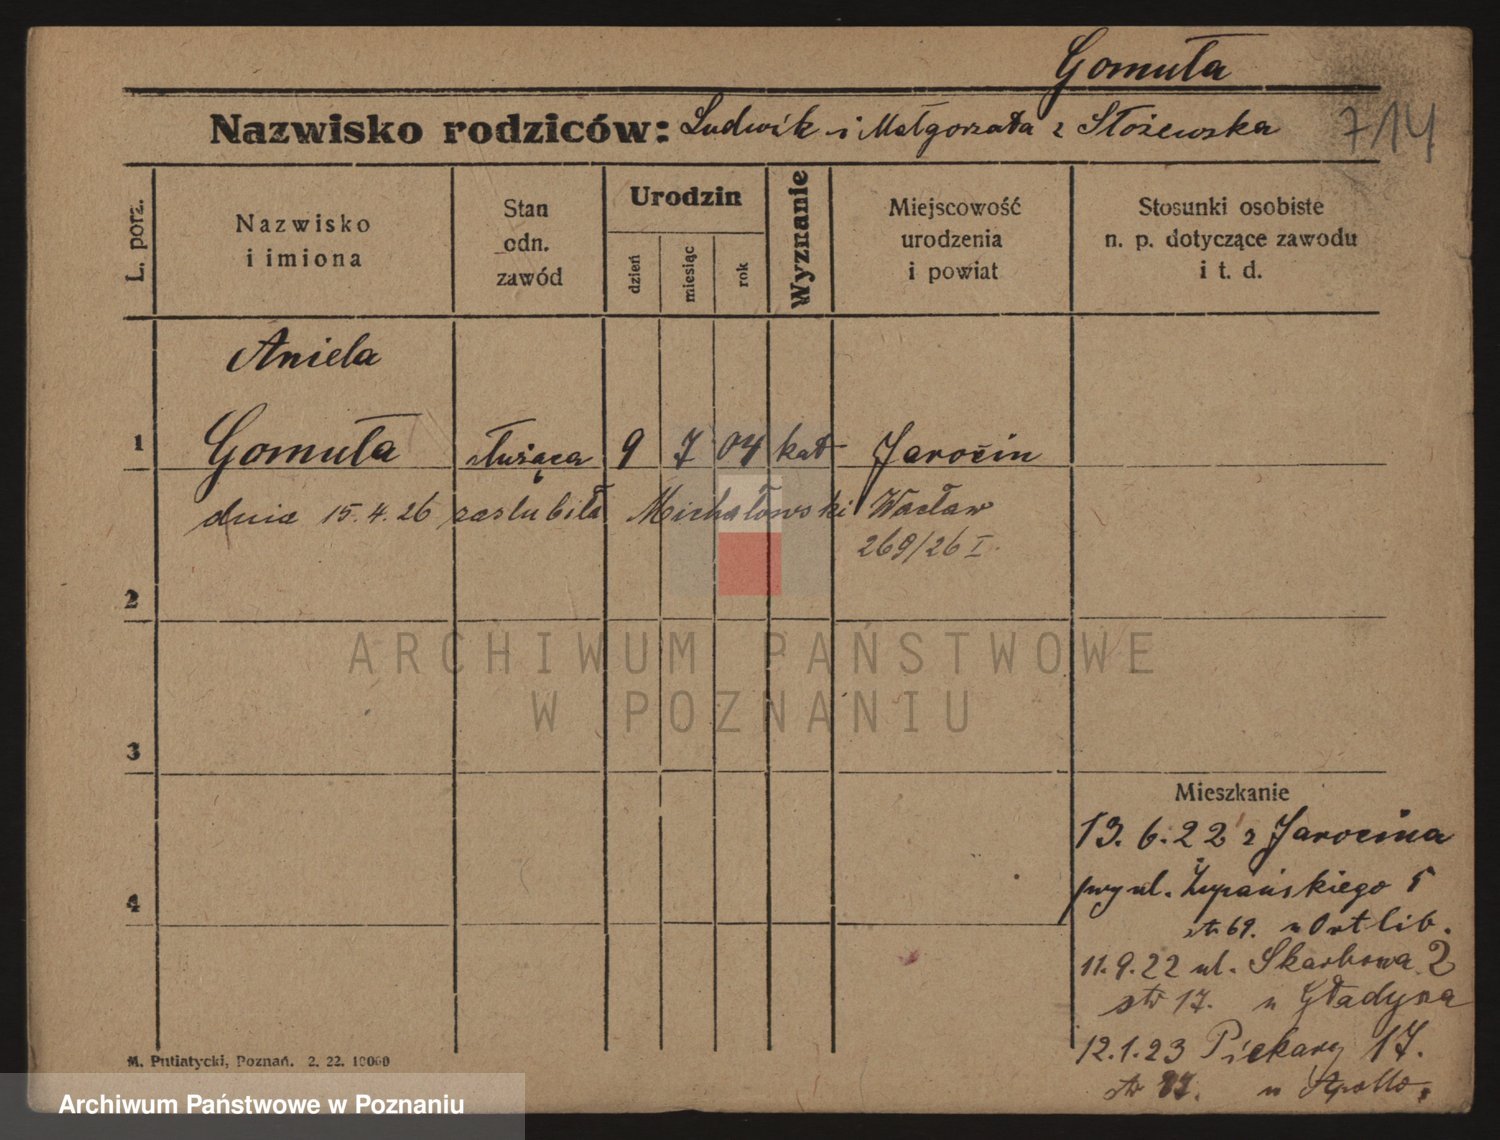 Gomuła
Nazwisko rodziców: Ludwik i Małgorzata z Stożewska
714
L. porz.
Nazwisko
i imiona
Stan
odn.
zawód
Urodzin
dzień
miesiąc
rok
Wyznanie
Miejscowość
urodzenia
i powiat
Stosunki osobiste
n. p. dotyczące zawodu
i t. d.
Aniela
1 Gomuła służąca 9 7 04 kat Jarocin
dnia 15.4.26 zaslubiła Michałowski Wacław
269/26 I.
2
ARCHIWUM PAŃSTWOWE
W POZNANIU
3
Mieszkanie
13.6.22 z Jarocina
4
przy ul. Żupańskiego 5
str 69. u Ortlib.
11.9.22 ul. Skarbowa 2
str 17. u Gładysza
12.1.23 Piekary 17.
str u Apollo.
M. Putiatycki, Poznań. 2. 22. 10000
Archiwum Państwowe w Poznaniu